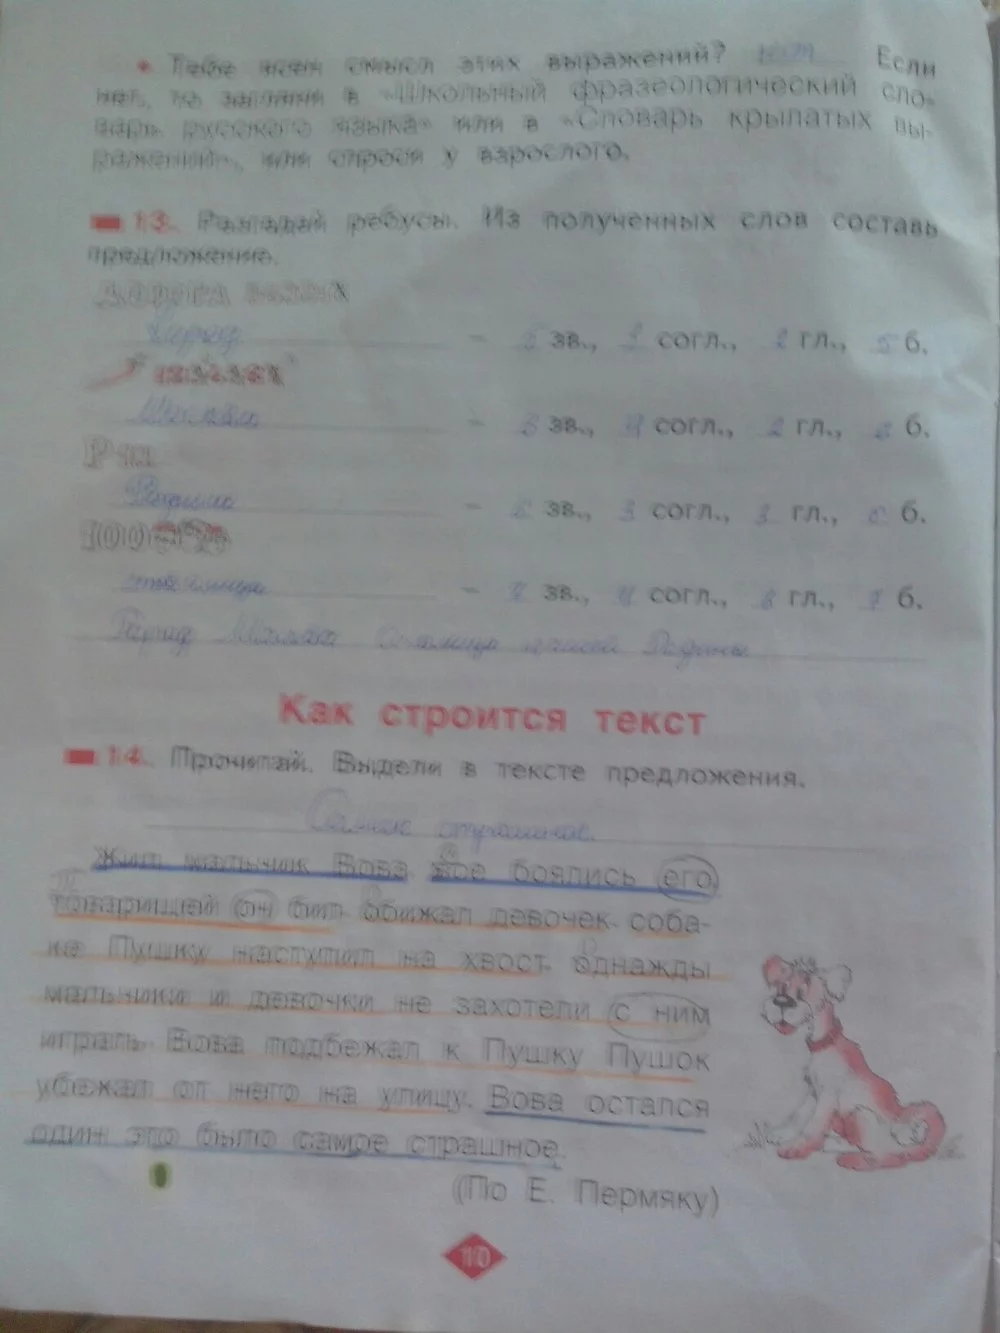 • Тебе ясен смысл этих выражений? нет Если
нет, то загляни в «Школьный фразеологический сло-
варь русского языка» или в «Словарь крылатых вы-
ражений», или спроси у взрослого.
13. Разгадай ребусы. Из полученных слов составь
предложение.
– зв., согл., 2 гл., 5 б.
– зв., 4 согл., 2 гл., 6 б.
Р
Родина
– 6 зв., 3 согл., 3 гл., 6 б.
100
столица
– 7 зв., 4 согл., гл., 7 б.
Город Москва столица нашей Родины
Как строится текст
14. Прочитай. Выдели в тексте предложения.
Самое страшное.
Жил мальчик Вова все боялись его
товарищей он бил обижал девочек соба-
ке Пушку наступил на хвост однажды
мальчики и девочки не захотели с ним
играть Вова подбежал к Пушку Пушок
убежал от него на улицу. Вова остался
один это было самое страшное.
(По Е. Пермяку)
10